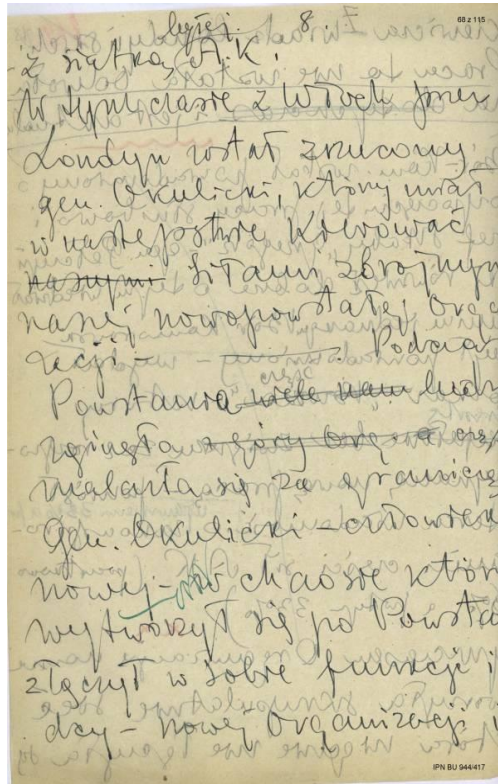 68 z 115
byłej. 8.
z siatką A.K.
W tymczasie z Włoch przez
Londyn został zrzucony
gen. Okulicki, który miał
w następstwie kierować
naszymi siłami zbrojnym
naszej nowopowstałej Orga
zacji - . Podczas
część
Powstania wiele nam ludzi
zginęła z góry Org a część
znalazła się za granicą
Gen. Okulicki - człowiek
nowy - w chaosie który
wytworzył się po Powsta
złączył w sobie funkcji i
dzy - nowej Organizacji
IPN BU 944/417